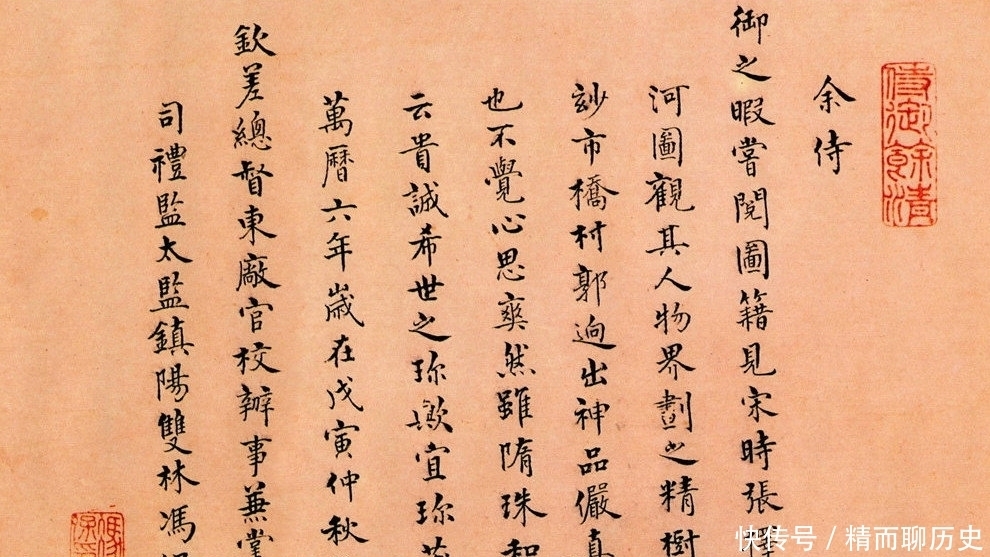 侍御餘清
余侍
御之暇嘗閱圖籍見宋時張
河圖觀其人物界劃之精樹
紗市橋村郭逈出神品儼真
也不覺心思爽然雖隋珠和
云貴誠希世之珎歟宜珎
萬曆六年歲在戊寅仲秋
欽差總督東廠官校辦事兼掌
司禮監太監鎮陽雙林馮
快传号/精而聊历史